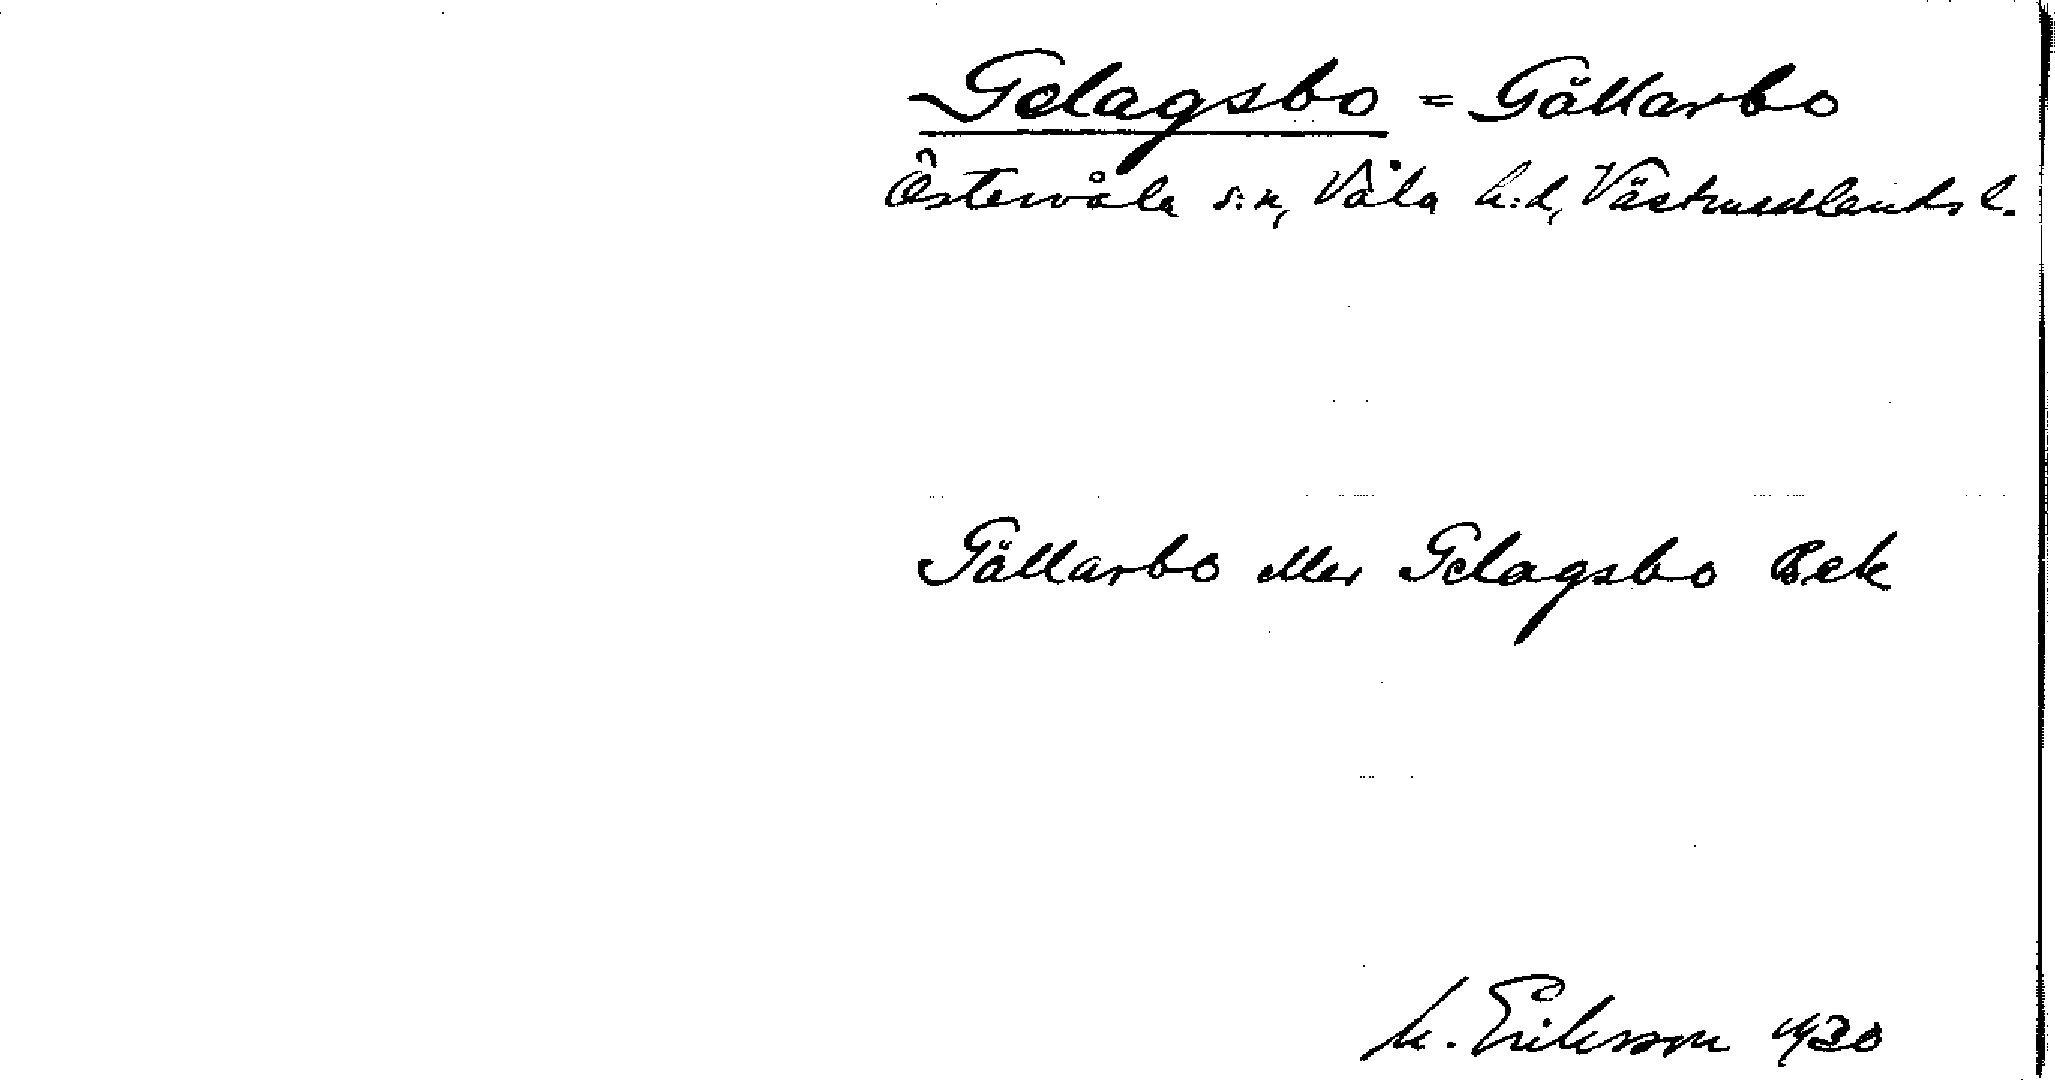 Gelagsbo = Gällarbo
Östervåla s:n, Våla h:d, Västmanlands l.
Gällarbo eller Gelagsbo Bek
M. Eriksson 1930